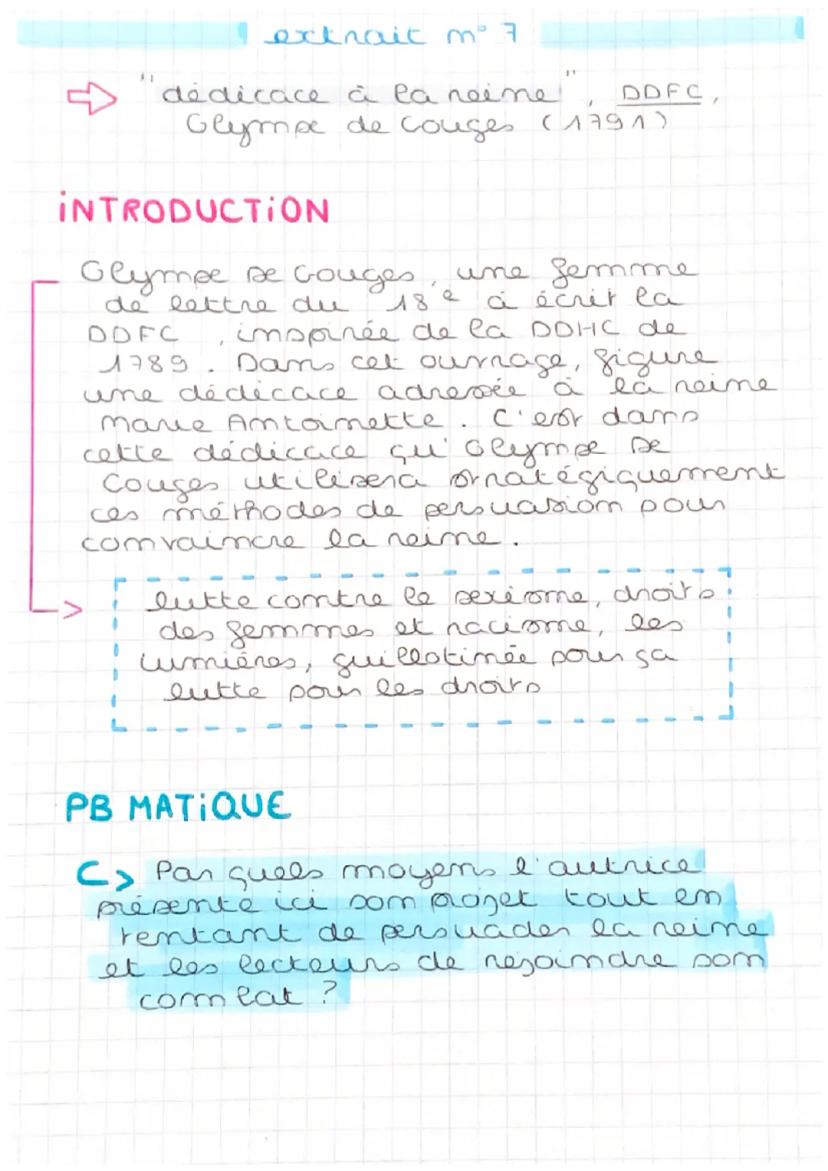 extrait n° 7
⇨ "dédicace à la reine", DDFC,
Olympe de Gouges (1791)
INTRODUCTION
Olympe De Gouges, une femme
de lettre du 18e à écrit la
DDFC, inspirée de la DDHC de
1789. Dans cet ouvrage, figure
une dédicace adressée à la reine
Marie Antoinette. C'est dans
cette dédicace qu'Olympe De
Gouges utilisera stratégiquement
ces méthodes de persuasion pour
convaincre la reine.
lutte contre le sexisme, droits
des femmes et racisme, les
lumières, guillotinée pour sa
lutte pour les droits
PB MATIQUE
Par quels moyens l'autrice
présente ici son projet tout en
tentant de persuader la reine
et les lecteurs de rejoindre son
combat ?